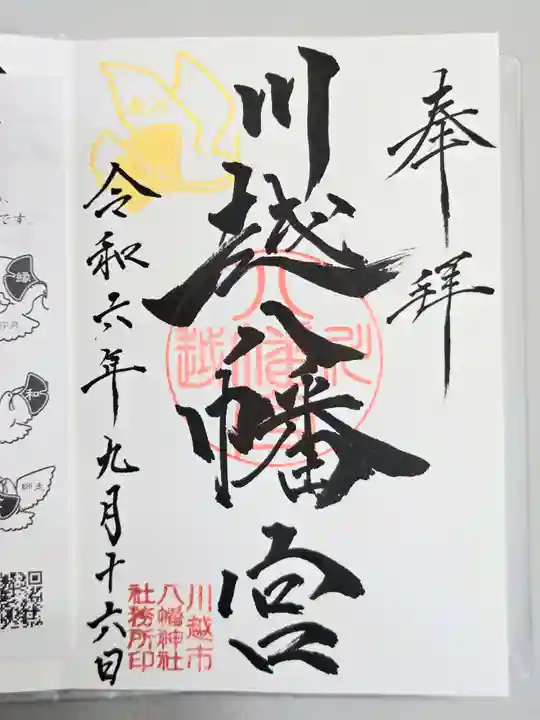 奉拝
川越八幡宮
令和六年九月十六日
川越市
八幡神社
社務所印
です。
縁
和
師走